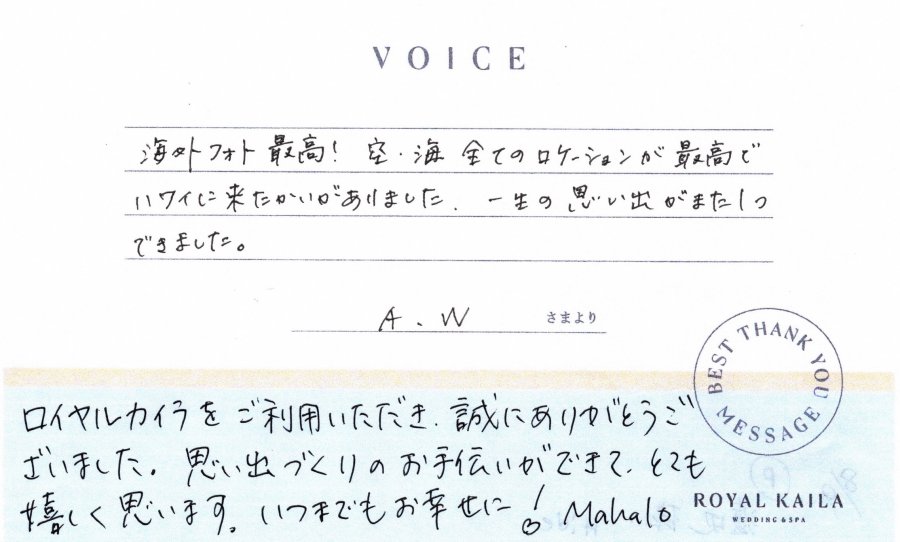 VOICE
海外フォト最高! 空・海 全てのロケーションが最高で
ハワイに来たかいがありました. 一生の思い出がまた1つ
できました。
A.W さまより
BEST THANK YOU MESSAGE
ロイヤルカイラをご利用いただき、誠にありがとうご
ざいました。思い出づくりのお手伝いができて、とても
嬉しく思います。いつまでもお幸せに! Mahalo
ROYAL KAILA
WEDDING & SPA